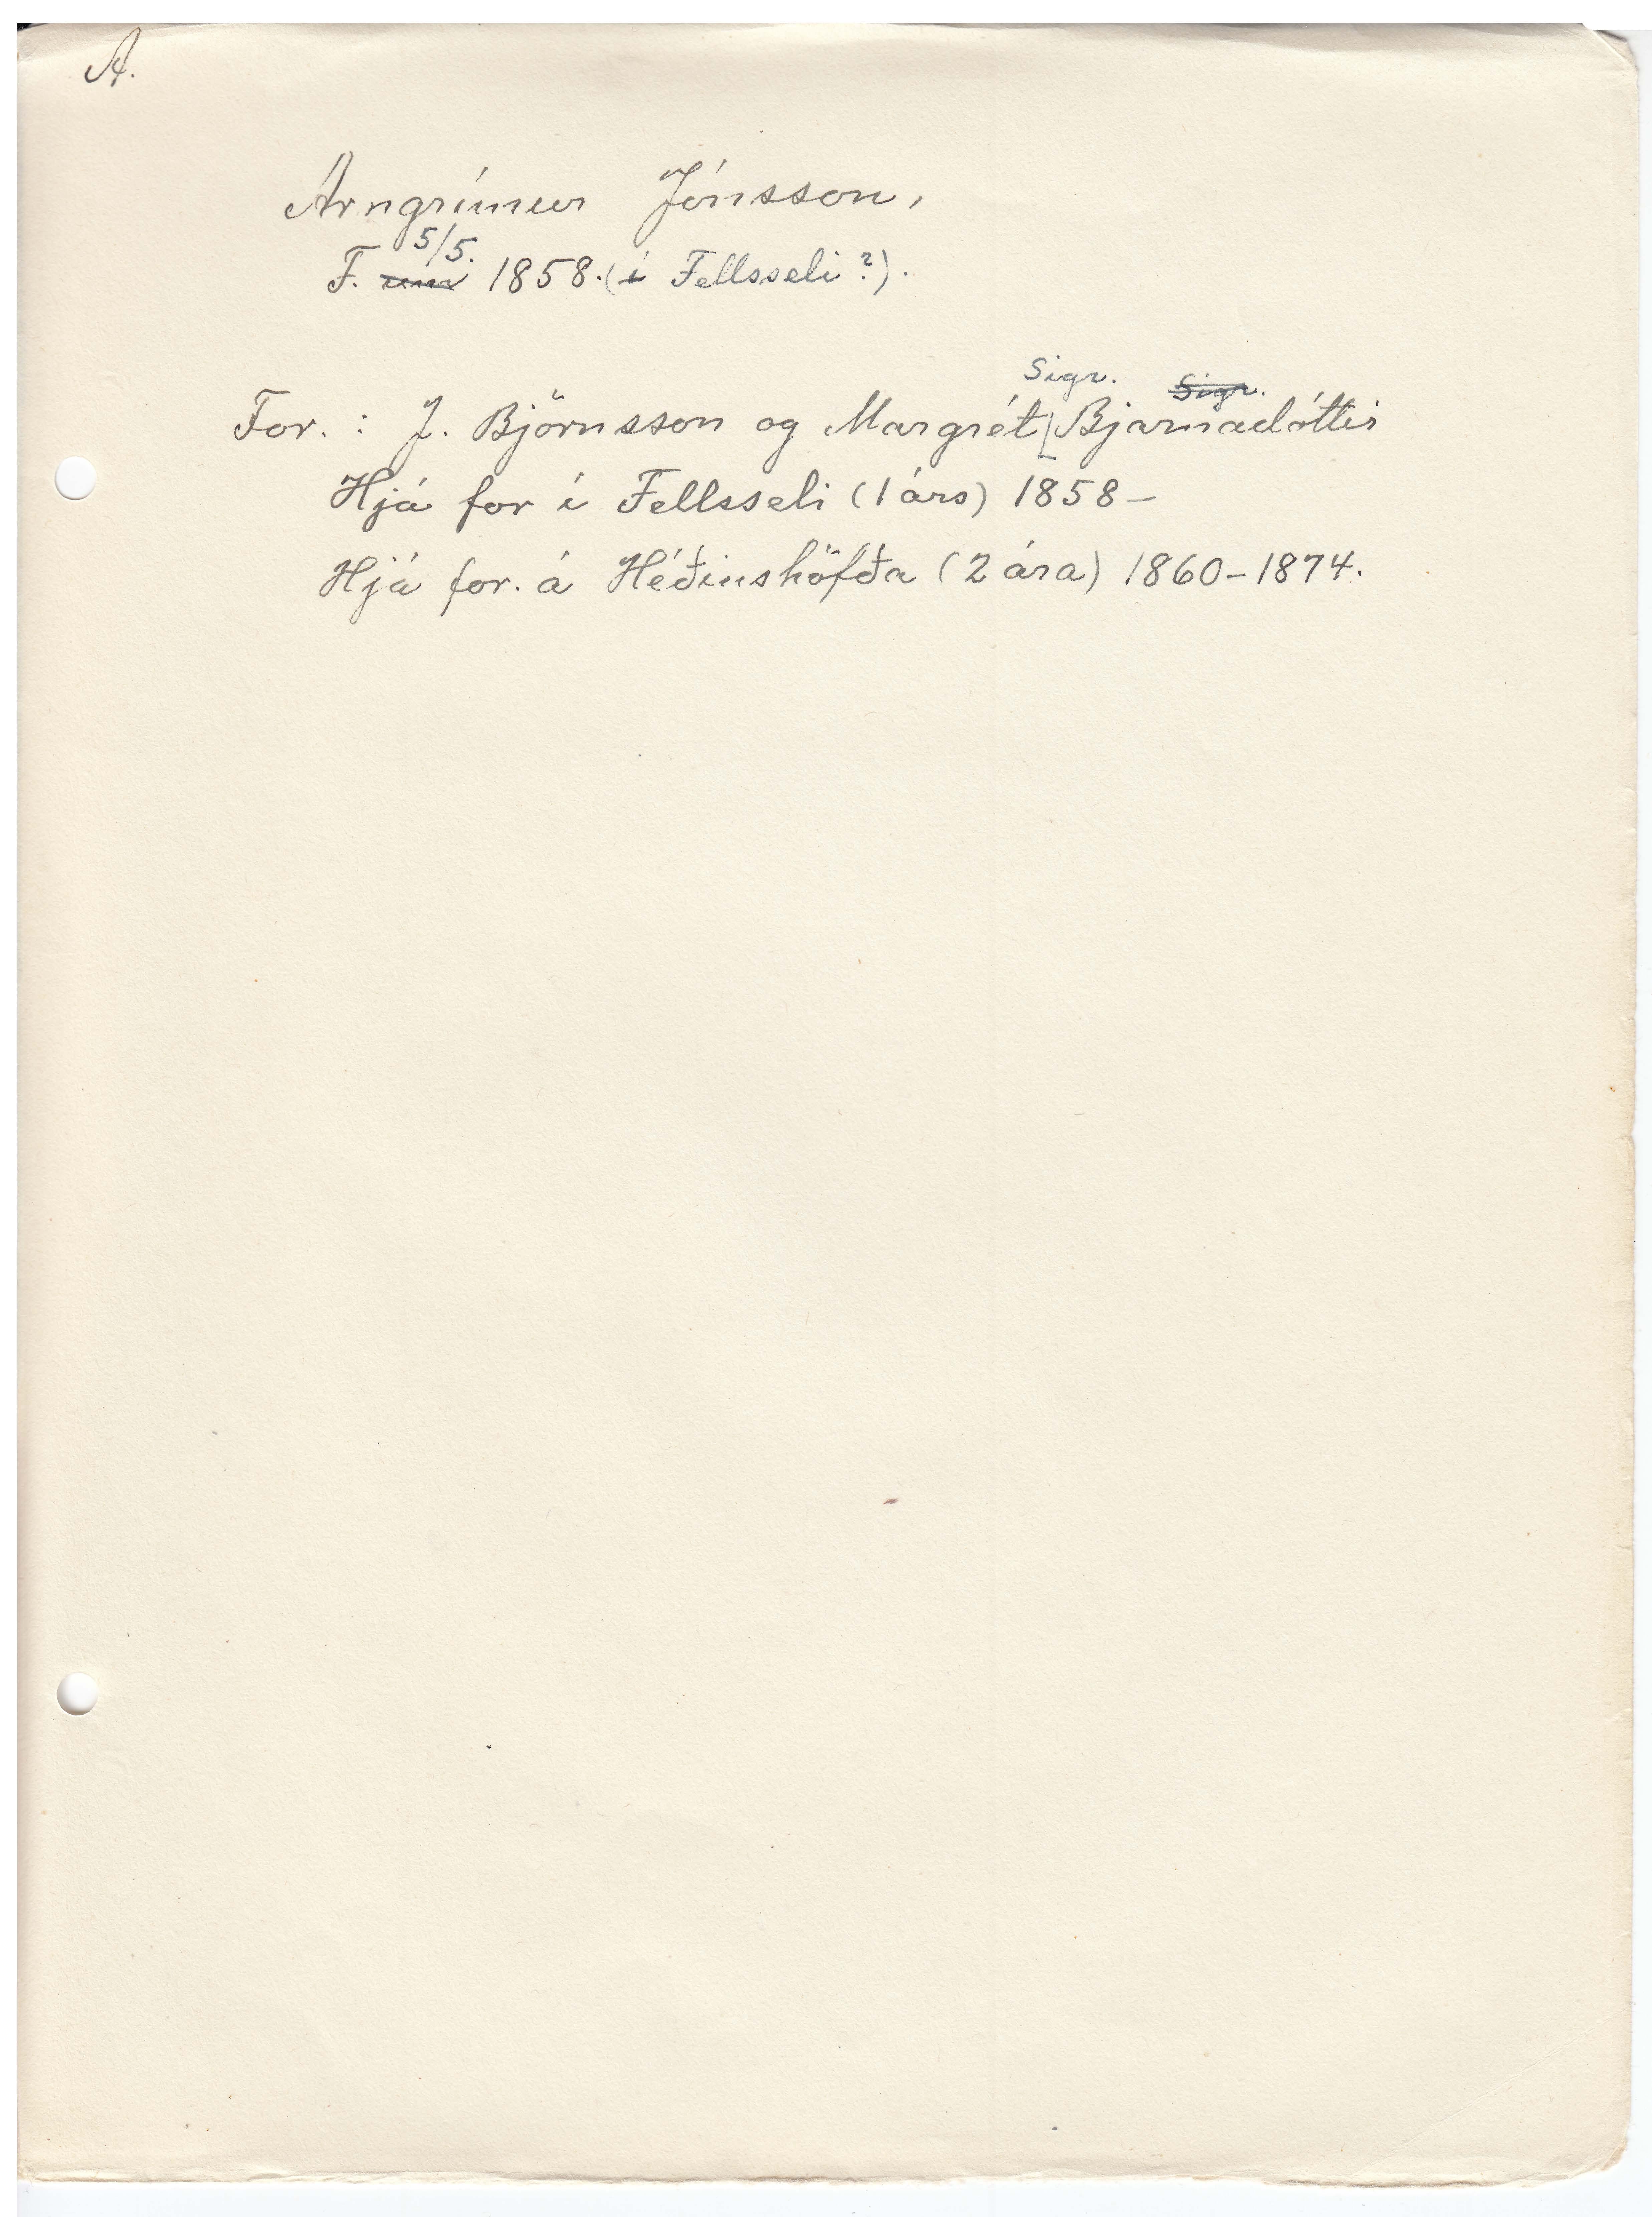 A.
Arngrímur Jónsson,
5/5.
F. um 1858. (í Fellsseli?).
Sigr. Sigr.
For. : J. Björnsson og Margrét Bjarnadóttir
Hjá for í Fellsseli (1 árs) 1858–
Hjá for. á Héðinshöfða (2 ára) 1860–1874.